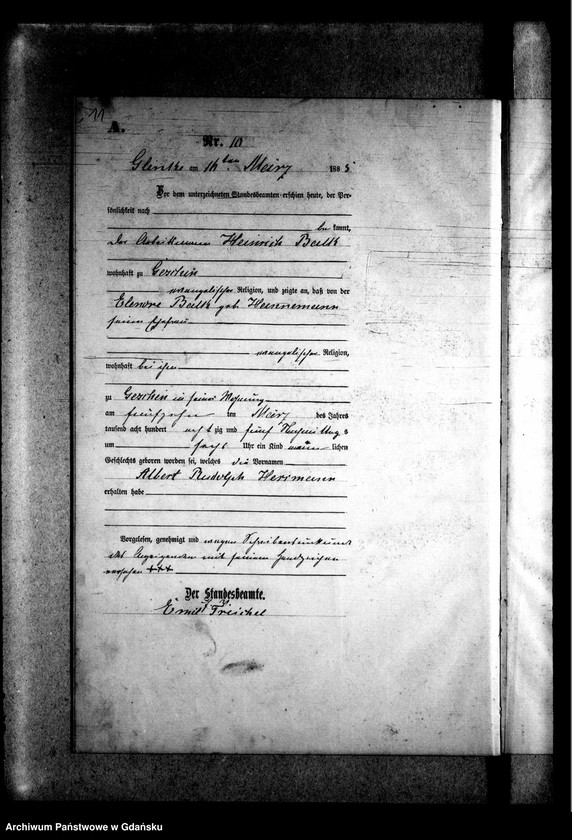 11
A.
Nr. 10
am 16 ten März 1885
Vor dem unterzeichneten Standesbeamten erschien heute, der Per-
sönlichkeit nach
be kannt,
der Heinrich Balk
wohnhaft zu
evangelischer Religion, und zeigte an, daß von der
Elenore Balk geb. Hannemann
seiner Ehefrau
evangelischer Religion,
wohnhaft bei ihm
zu in seiner Wohnung
am fünfzehn ten März des Jahres
tausend acht hundert acht zig und fünf Nachmittag s
um sechs Uhr ein Kind männ lichen
Geschlechts geboren worden sei, welches die Vornamen
Albert Rudolph Hermann
erhalten habe
Vorgelesen, genehmigt und wegen Schreibensunkunde
des Anzeigenden mit seinem Handzeichen
versehen +++
Der Standesbeamte.
Treichel
Archiwum Państwowe w Gdańsku